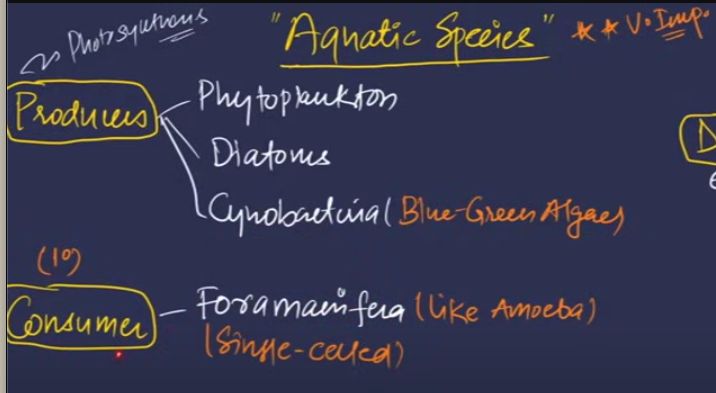 "Aquatic Species" ★★ V. Imp.
Photosynthesis
Producers
Phytoplankton
Diatoms
Cynobacteria (Blue-Green Algaes)
(1°)
Consumer – Foramanifera (like Amoeba)
(Single-celled)
D